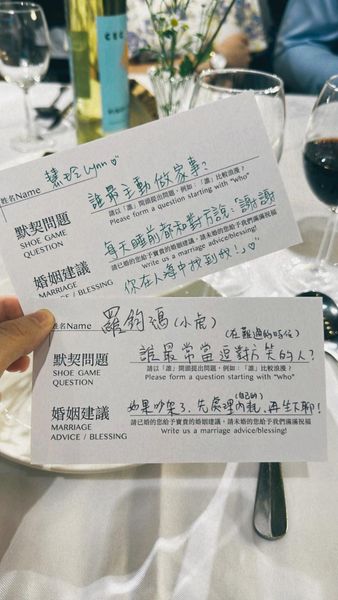 姓名Name 慧玲 Lynn♡
默契問題
SHOE GAME
QUESTION
誰最主動做家事?
請以「誰」開頭提出問題,例如:「誰」比較浪漫?
Please form a question starting with "Who"
婚姻建議
MARRIAGE
ADVICE / BLESSING
每天睡前都和對方說:「謝謝
請已婚的您給予寶貴的婚姻建議,請未婚的您給予我們滿滿祝福
Write us a marriage advice/blessing!
你在人海中找到我!」♡
姓名Name 羅鈞鴻(小虎)
默契問題
SHOE GAME
QUESTION
(在難過的時候)
誰最常當逗對方笑的人?
請以「誰」開頭提出問題,例如:「誰」比較浪漫?
Please form a question starting with "Who"
婚姻建議
MARRIAGE
ADVICE / BLESSING
(自己的)
如果吵架了,先處理內耗,再坐下聊!
請已婚的您給予寶貴的婚姻建議,請未婚的您給予我們滿滿祝福
Write us a marriage advice/blessing!